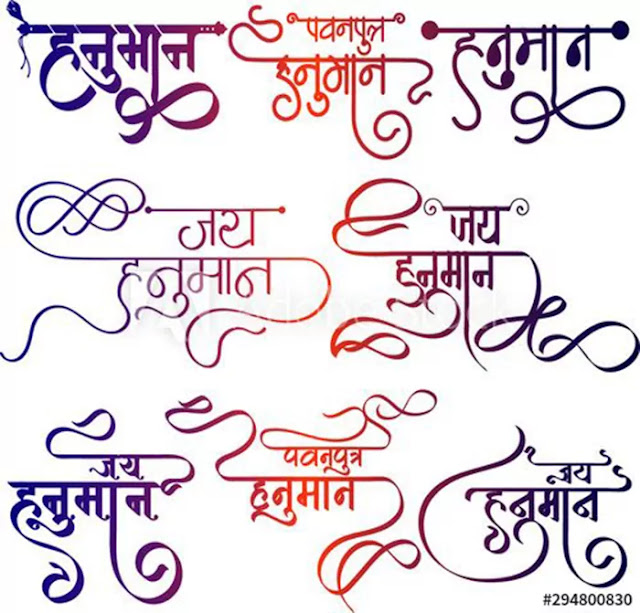 हनुमान
पवनपुत्र
हनुमान
हनुमान
जय
हनुमान
जय
हनुमान
जय
हनुमान
पवनपुत्र
हनुमान
जय
हनुमान
#294800830